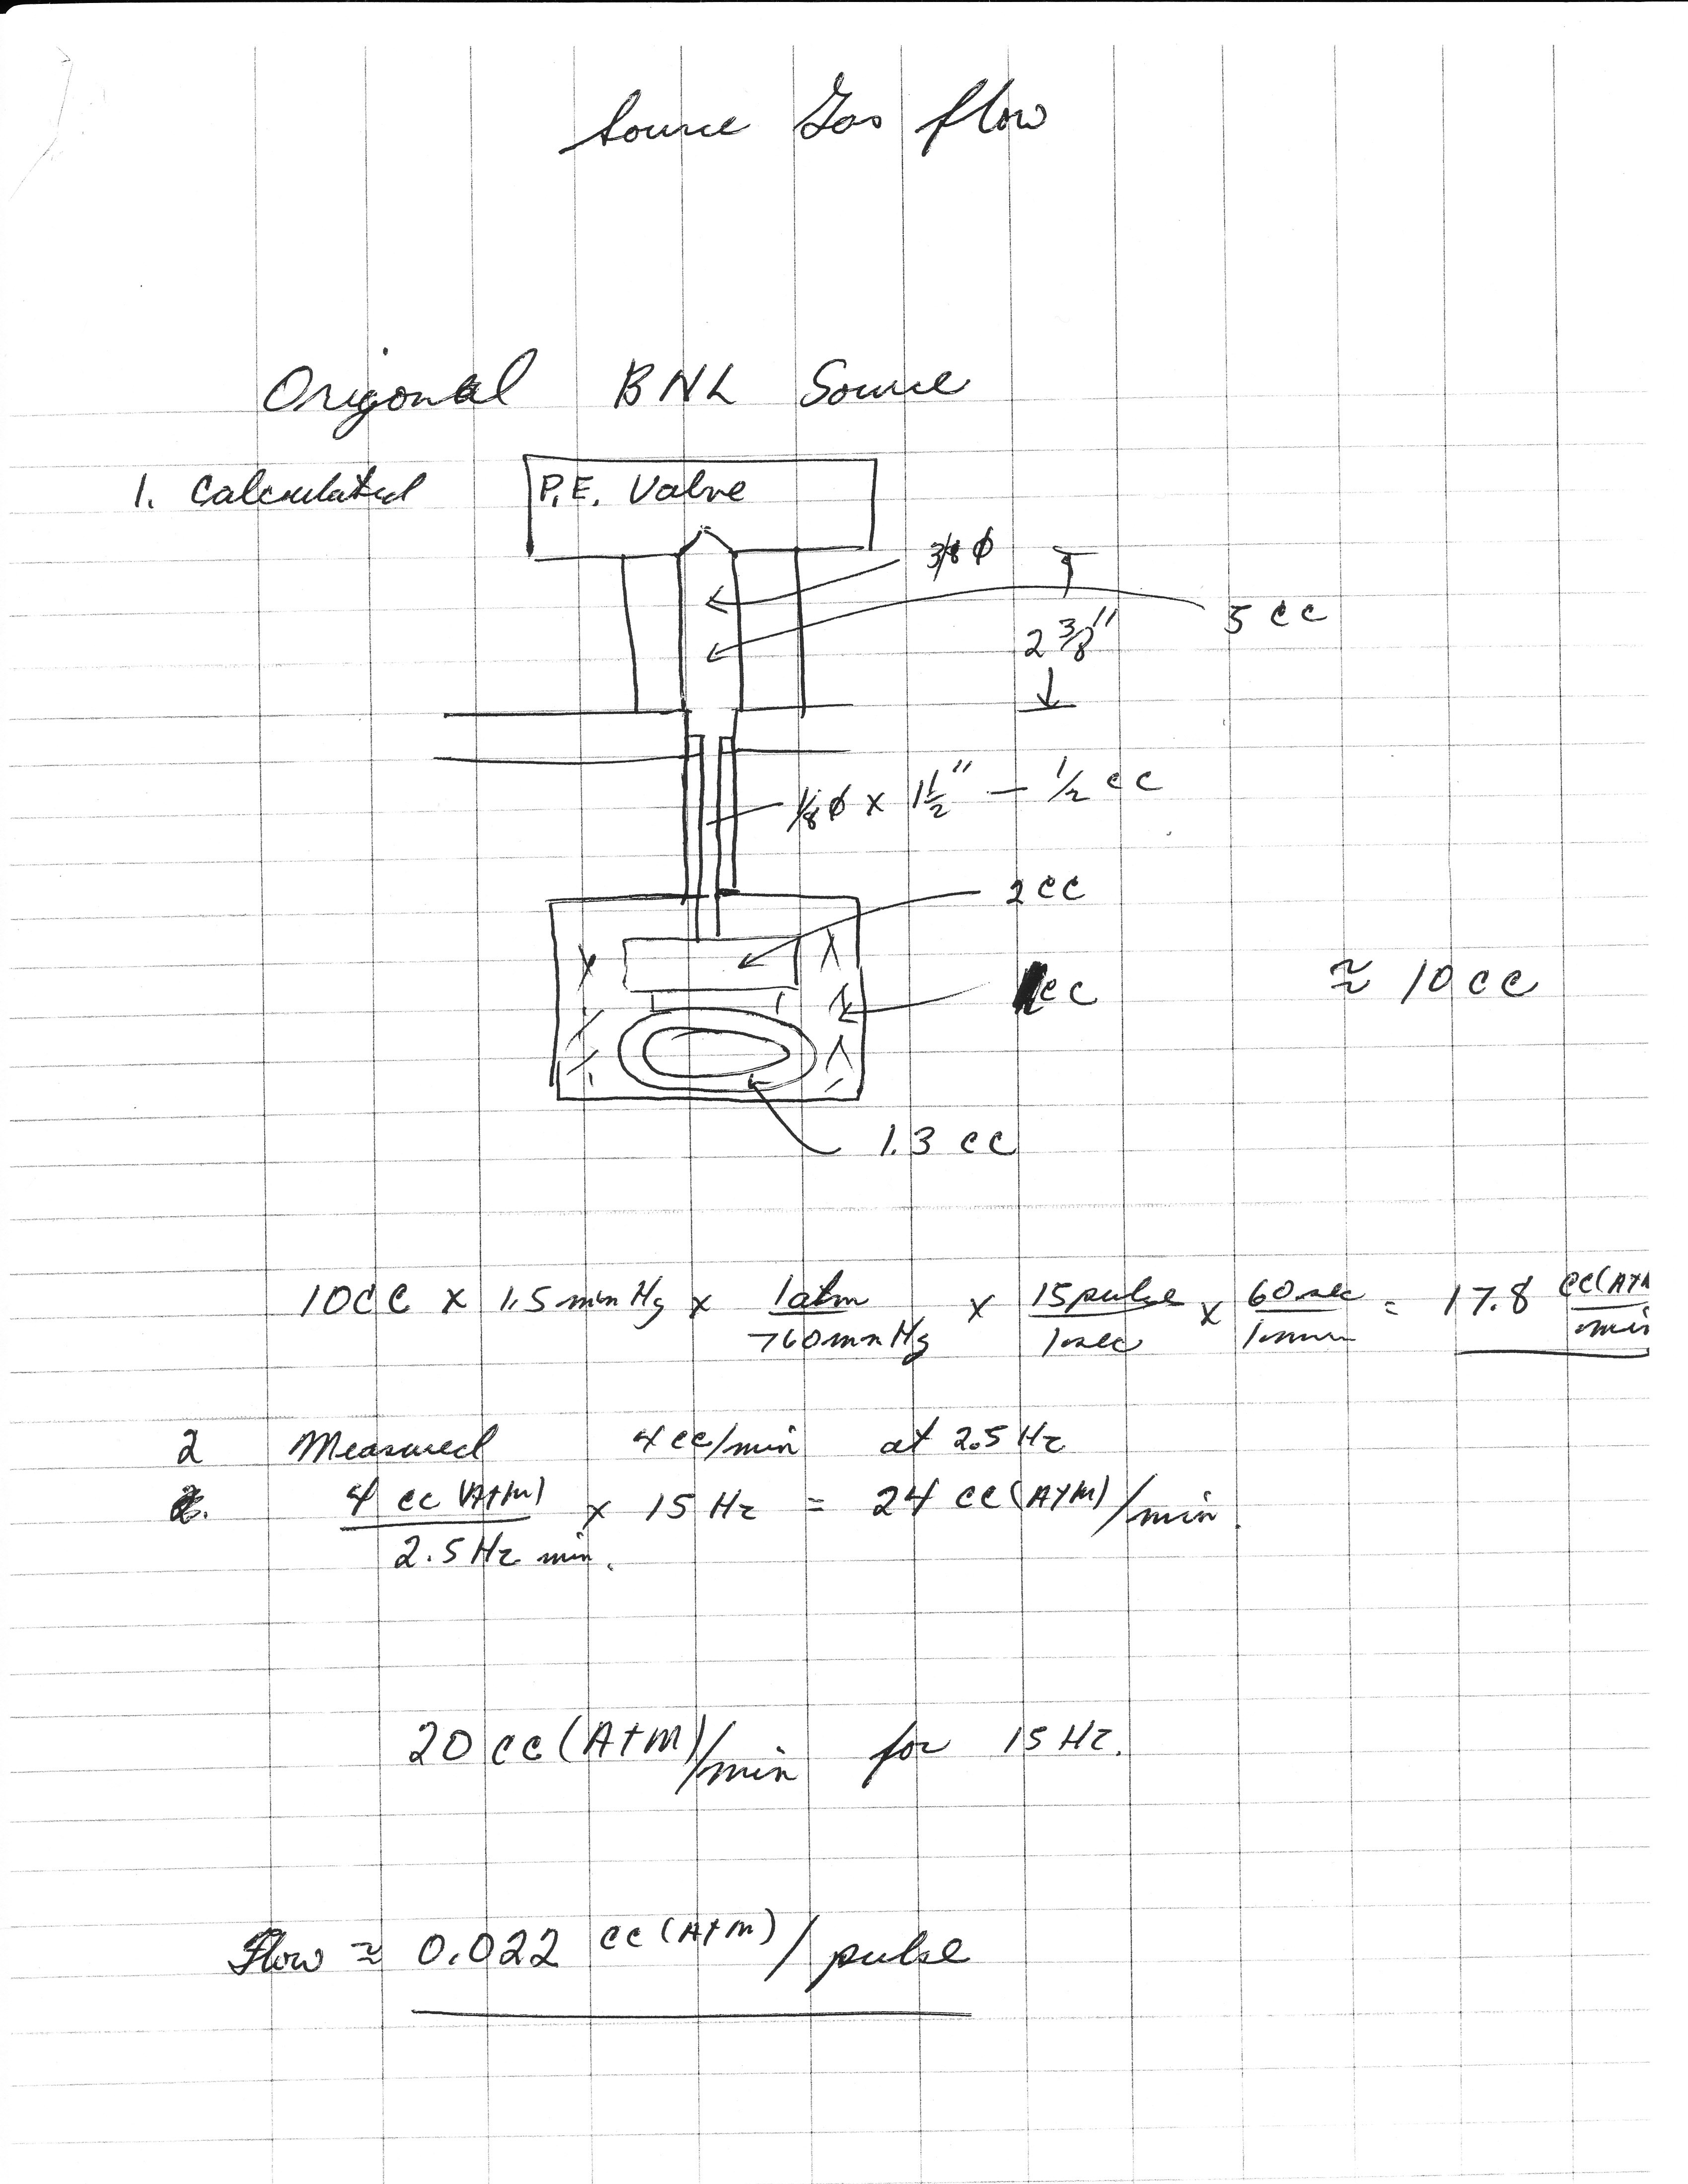 Source Gas flow
Origonal BNL Source
1. Calculated
P.E. Valve
3/8 ϕ
5 cc
2 3/8"
1/8 ϕ x 1 1/2" — 1/2 cc
2 cc
cc
≈ 10 cc
1.3 cc
10cc x 1.5 mm Hg x 1 atm / 760 mm Hg x 15 pulse / 1 sec x 60 sec / 1 min = 17.8 cc(ATM / min
2 Measured 4 cc/min at 2.5 Hz
2. 4 cc (ATM) / 2.5 Hz min. x 15 Hz = 24 cc (ATM)/min.
20 cc (ATM)/min for 15 Hz.
Flow ≈ 0.022 cc (ATM) / pulse